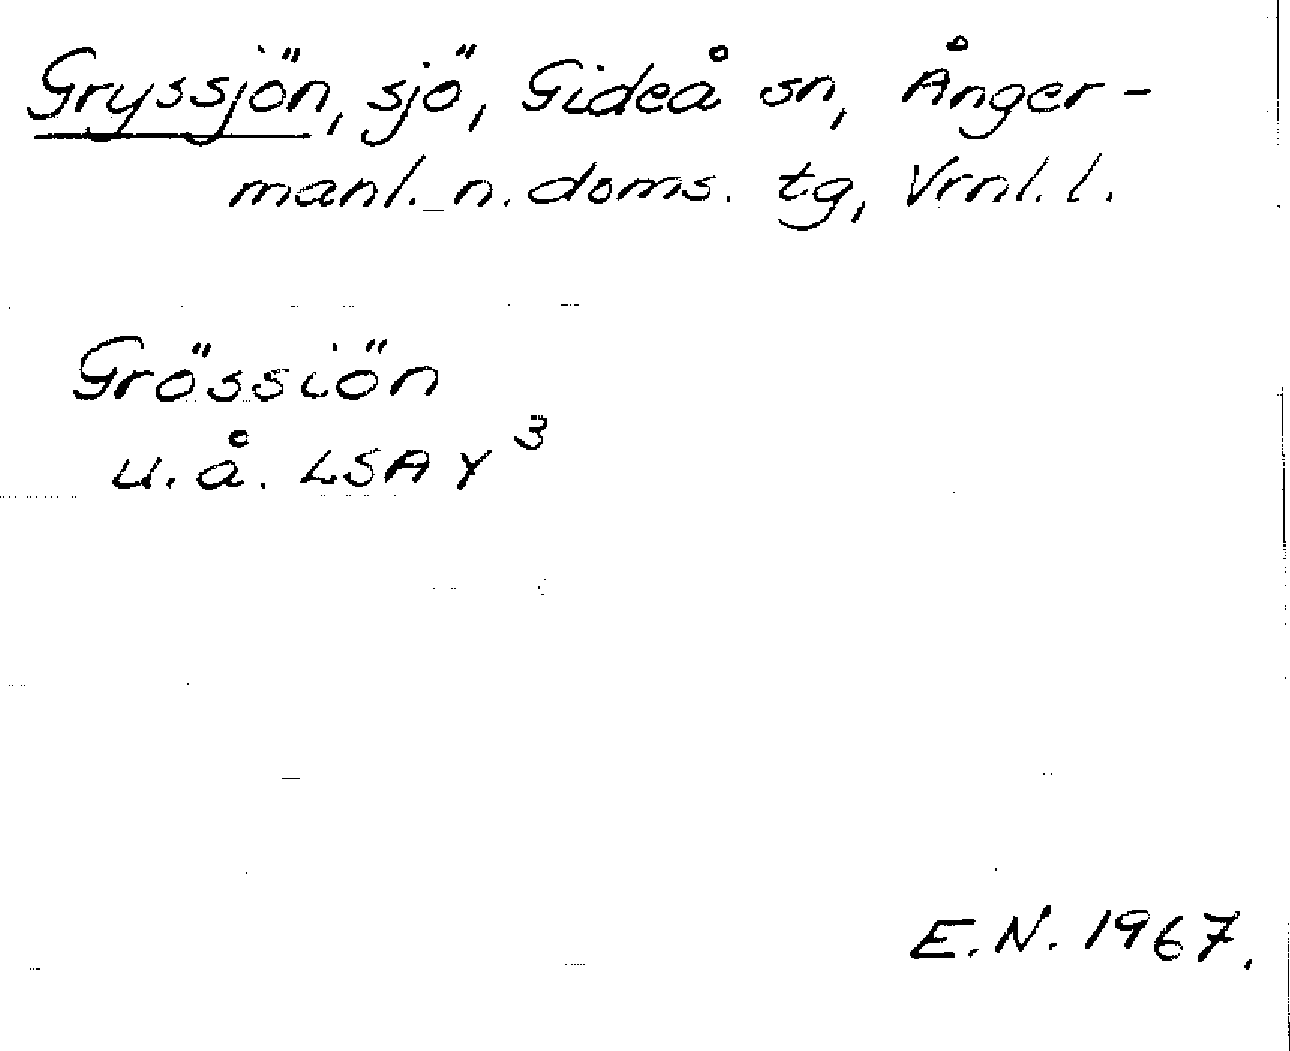 Gryssjön, sjö, Gideå sn, Ånger-
manl. n. doms. tg, Vrnl. l.
Grössiön
u.å. LSA Y³
E.N. 1967.